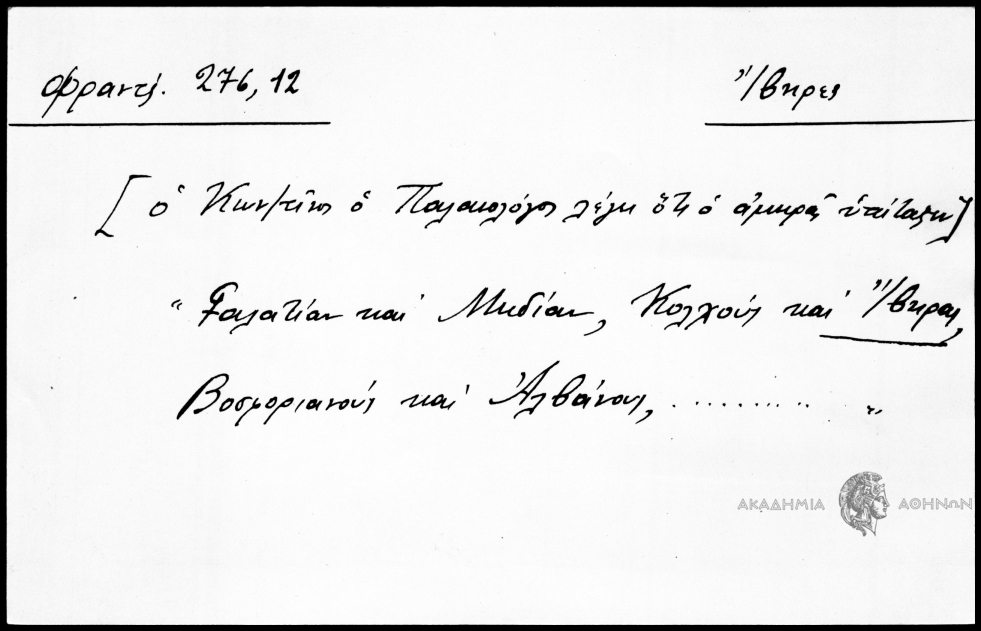 Φραντζ. 276, 12
Ἴβηρες
[ὁ Κων/τῖνος ὁ Παλαιολόγος λέγει ὅτι ὁ ἀμηρᾶς ὑπέταξεν]
“ Γαλατίαν καὶ Μηδίαν, Κολχοὺς καὶ Ἴβηρας,
Βοσποριανοὺς καὶ Ἀλβάνους, .......... „
ΑΚΑΔΗΜΙΑ ΑΘΗΝΩΝ